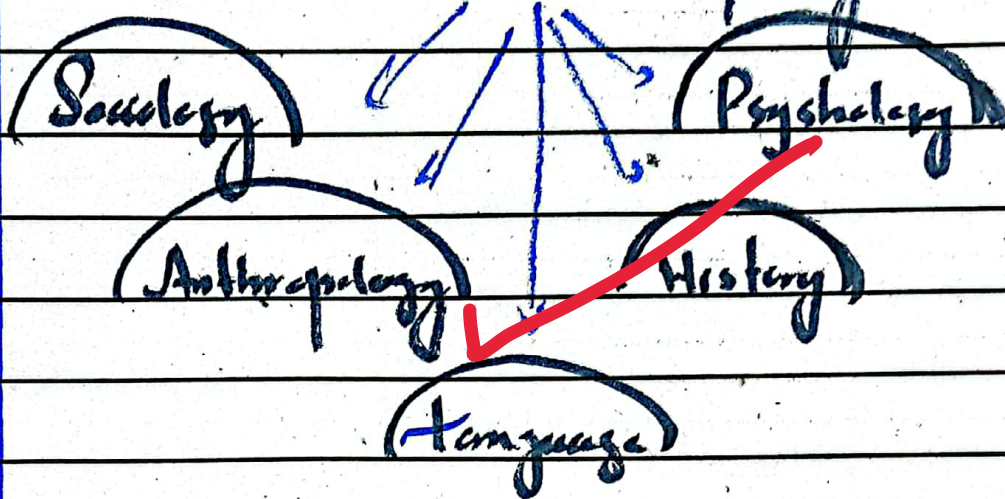 Sociology
Psychology
Anthropology
History
Language